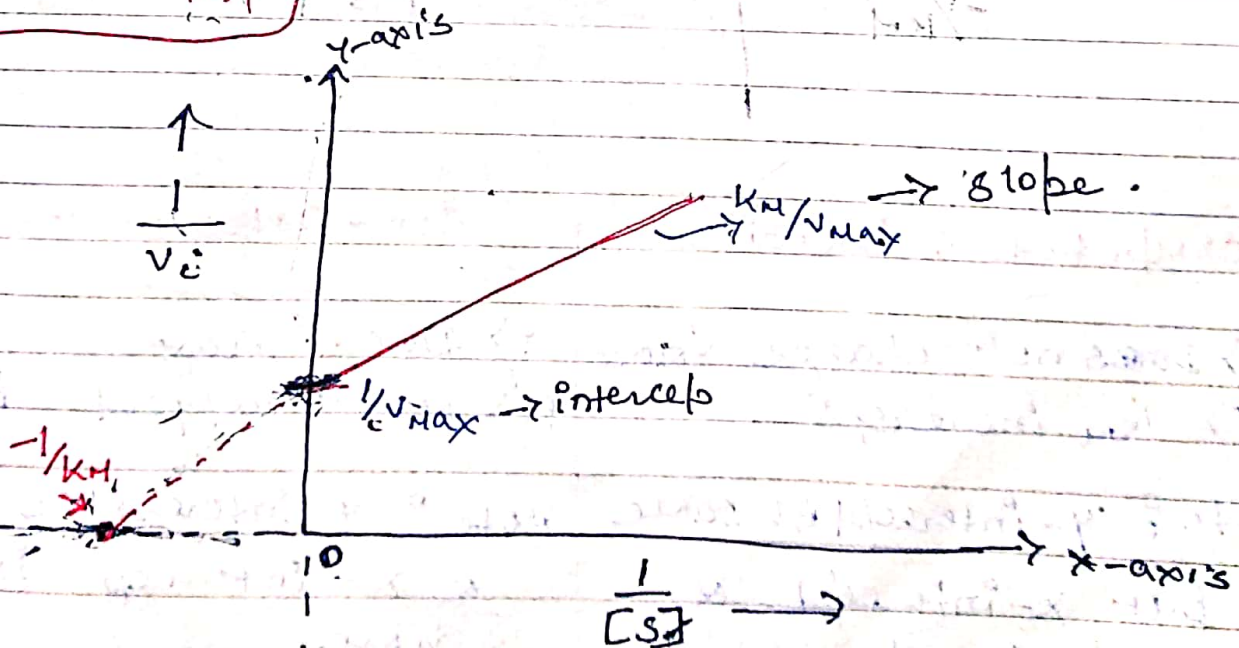 y-axis
1/Vi
KM/VMax → slope.
1/VMax → intercep
-1/KM
0
x-axis
1/[S]